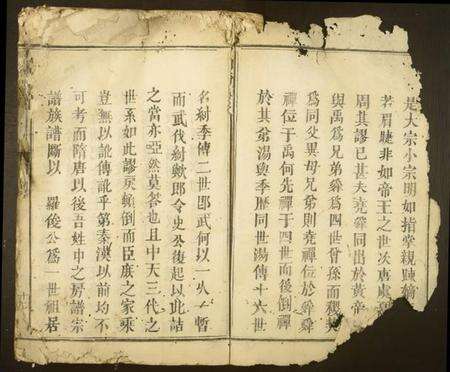 是大宗小宗明如指掌親疎嫡
若眉睫非如帝王之世次專處
周其謬已甚夫堯舜同出於黃帝
與禹爲兄弟舜爲四世曾孫而稷契
爲同父異母兄弟則堯禪位於舜舜
禪位于禹何先禪于四世而後倒禪
於其翁湯與季歷同世湯傳十六世
名紂季傳二世即武何以一久一暫
而武伐紂歟即令史公復起以此詰
之當亦啞然莫荅也且中天三代之
世系如此謬戾顛倒而臣庶之家乘
豈無以訛傳訛乎第秦漢以前均不
可考而隋唐以後吾姓中之房譜宗
譜族譜斷以 羅俊公爲一世祖居